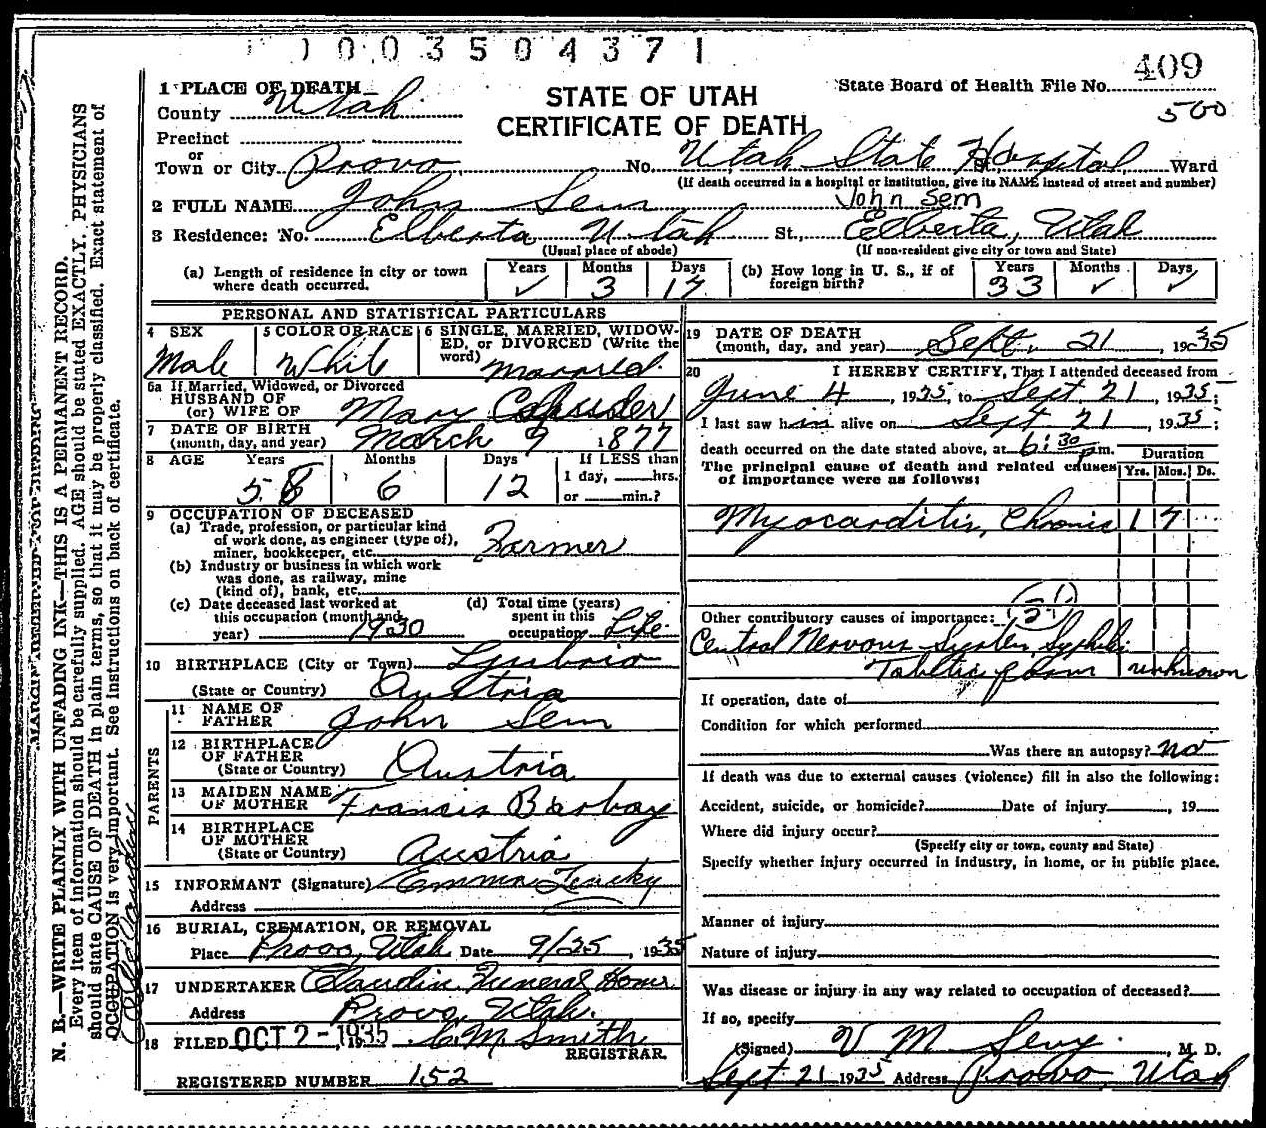 1003504371
409
1 PLACE OF DEATH
STATE OF UTAH
CERTIFICATE OF DEATH
State Board of Health File No.
500
County Utah
Precinct
or
Town or City Provo No. Utah State Hospital St., Ward
(If death occurred in a hospital or institution, give its NAME instead of street and number)
2 FULL NAME John Sem John Sem
3 Residence: No. Elberta Utah St., Elberta, Utah
(Usual place of abode) (If non-resident give city or town and State)
(a) Length of residence in city or town where death occurred. Years ✓ Months 3 Days 17
(b) How long in U. S., if of foreign birth? Years 33 Months ✓ Days ✓
PERSONAL AND STATISTICAL PARTICULARS
4 SEX 5 COLOR OR RACE 6 SINGLE, MARRIED, WIDOWED, or DIVORCED (Write the word)
Male White Married.
6a If Married, Widowed, or Divorced
HUSBAND OF
(or) WIFE OF Mary
7 DATE OF BIRTH
(month, day, and year) March 9 1877
8 AGE Years Months Days If LESS than
58 6 12 1 day, hrs.
or min.?
9 OCCUPATION OF DECEASED
(a) Trade, profession, or particular kind
of work done, as engineer (type of),
miner, bookkeeper, etc. Farmer
(b) Industry or business in which work
was done, as railway, mine
(kind of), bank, etc.
(c) Date deceased last worked at
this occupation (month and
year) 1930
(d) Total time (years)
spent in this
occupation Life
10 BIRTHPLACE (City or Town)
(State or Country) Austria
PARENTS
11 NAME OF
FATHER John Sem
12 BIRTHPLACE
OF FATHER
(State or Country) Austria
13 MAIDEN NAME
OF MOTHER Francis Barbay
14 BIRTHPLACE
OF MOTHER
(State or Country) Austria
15 INFORMANT (Signature) Emma
Address
16 BURIAL, CREMATION, OR REMOVAL
Place Provo, Utah Date 9/25, 1935
17 UNDERTAKER Claudin Funeral Home
Address Provo, Utah.
18 FILED OCT 2-1935, 19 C.M. Smith
REGISTRAR.
REGISTERED NUMBER 152
19 DATE OF DEATH
(month, day, and year) Sept. 21, 1935
20 I HEREBY CERTIFY, That I attended deceased from
June 4, 1935, to Sept. 21, 1935;
I last saw him alive on Sept 21, 1935;
death occurred on the date stated above, at 6:30 p.m.
Duration
The principal cause of death and related causes Yrs. Mos. Ds.
of importance were as follows:
Myocarditis, Chronic 1 7
Other contributory causes of importance:
Central Nervous System Syphilis
Tabetic form unknown
If operation, date of
Condition for which performed
Was there an autopsy? no
If death was due to external causes (violence) fill in also the following:
Accident, suicide, or homicide? Date of injury, 19
Where did injury occur?
(Specify city or town, county and State)
Specify whether injury occurred in industry, in home, or in public place.
Manner of injury
Nature of injury
Was disease or injury in any way related to occupation of deceased?
If so, specify
(Signed) V M Sevy, M. D.
Sept 21 1935 Address Provo, Utah
N. B.—WRITE PLAINLY WITH UNFADING INK—THIS IS A PERMANENT RECORD.
Every item of information should be carefully supplied. AGE should be stated EXACTLY. PHYSICIANS
should state CAUSE OF DEATH in plain terms, so that it may be properly classified. Exact statement of
OCCUPATION is very important. See instructions on back of certificate.
MARGIN RESERVED FOR BINDING